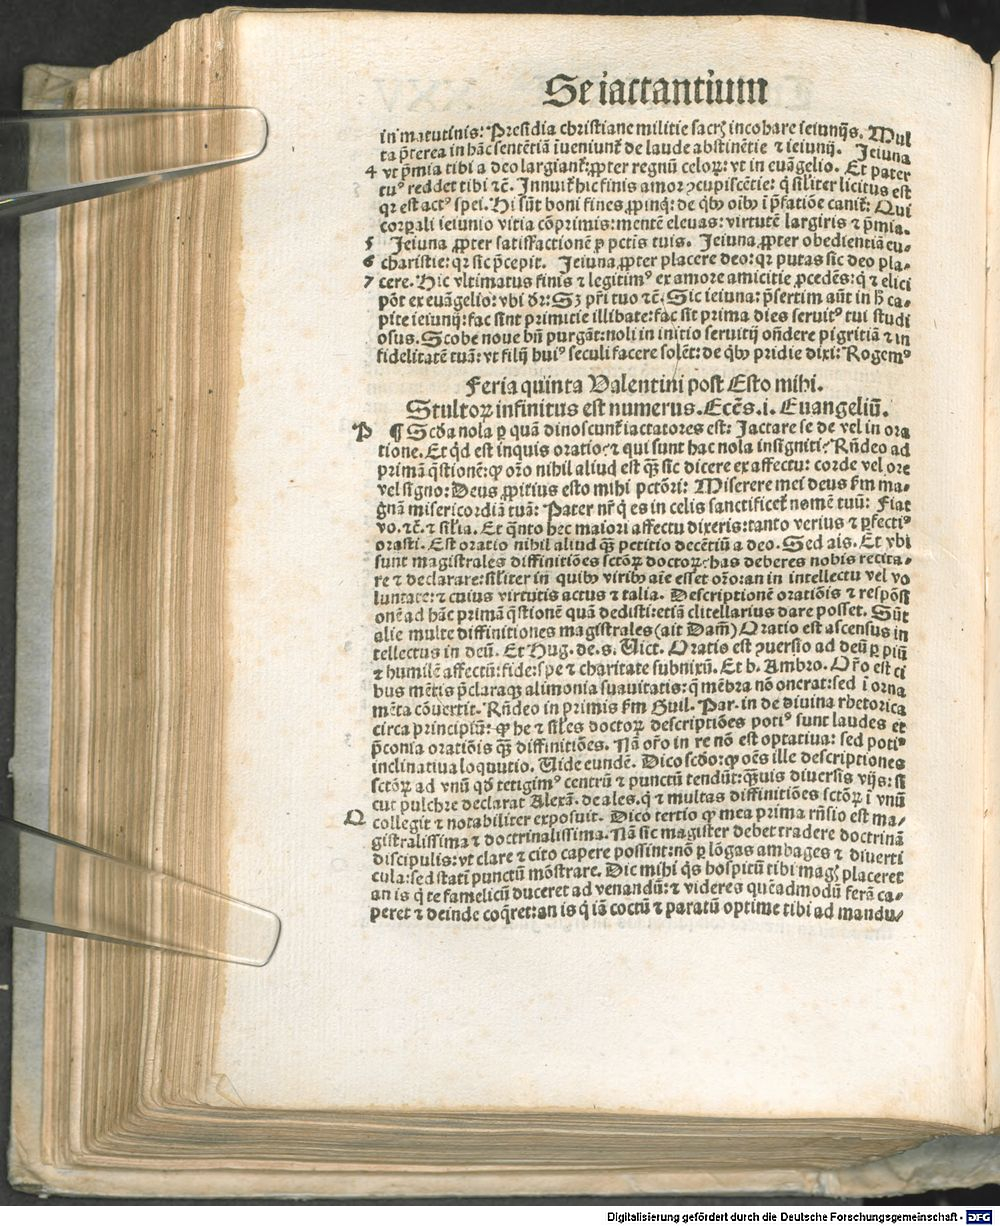 Se iactantium
in matutinis: Presidia christiane militie sacrꝫ incohare ieiunijs. Mul
ta p̄terea in hāc sentētiā iueniunt̄ de laude abstinētie ⁊ ieiunij. Ieiuna
4 vt p̄mia tibi a deo largiant̄: ꝓpter regnū celoꝝ: vt in euāgelio. Et pater
tuꝰ reddet tibi ⁊c̄. Innuit̄ hic finis amor ꝯcupiscētie: q̄ siliter licitus est
qꝛ est actꝰ spei. Hi sūt boni fines ꝓpinq̄: de qbꝰ oībꝰ i p̄fatiōe canit̄: Qui
corꝑali ieiunio vitia cōprimis: mentē eleuas: virtutē largiris ⁊ p̄mia.
5 Ieiuna ꝓpter satisfactionē ꝑ pctīs tuis. Ieiuna ꝓpter obedientiā eu-
6 charistie: qꝛ sic p̄cepit. Ieiuna ꝓpter placere deo: qꝛ putas sic deo pla-
7 cere. Hic vltimatus finis ⁊ legitimꝰ ex amore amicitie ꝓcedēs: q̄ ⁊ elici
pōt ex euāgelio: vbi dꝛ: Sꝫ pr̄i tuo ⁊c̄. Sic ieiuna: p̄sertim aūt in h̄ ca-
pite ieiunij: fac sint primitie illibate: fac sit prima dies seruitꝰ tui studi
osus. Scobe noue bn̄ purgāt: noli in initio seruitij on̄dere pigritiā ⁊ in
fidelitatē tuā: vt filij huiꝰ seculi facere solēt: de qbꝰ pridie dixi: Rogemꝰ
Feria quinta Valentini post Esto mihi.
Stultoꝝ infinitus est numerus. Ecc̄s. i. Euangeliū.
P ¶ Scd̄a nola ꝑ quā dinoscunt̄ iactatores est: Iactare se de vel in ora
tione. Et qd̄ est inquis oratio: ⁊ qui sunt hac nola insigniti: Rn̄deo ad
primā q̄stionē: ꝙ or̄o nihil aliud est q̄ꝫ sic dicere ex affectu: corde vel ore
vel signo: Deus ꝓpitius esto mihi pctōri: Miserere mei deus fm̄ ma-
gnā misericordiā tuā: Pater nr̄ q̄ es in celis sanctificet̄ nomē tuū: Fiat
vo. ⁊c̄. ⁊ silīa. Et q̄nto hec maiori affectu dixeris: tanto verius ⁊ ꝑfectiꝰ
orasti. Est oratio nihil aliud q̄ꝫ petitio decētiū a deo. Sed ais. Et vbi
sunt magistrales diffinitiōes sctōꝝ doctoꝝ: has deberes nobis recita-
re ⁊ declarare: siliter in quibꝰ viribꝰ aīe esset or̄o: an in intellectu vel vo
luntate: ⁊ cuius virtutis actus ⁊ talia. Descriptionē oratiōis ⁊ respōsi
onē ad hāc primā q̄stionē quā dedisti: etiā clitellarius dare posset. Sūt
alie multe diffinitiones magistrales (ait Dam̄) Oratio est ascensus in
tellectus in deū. Et Hug. de. s. Vict. Oratis est ꝯuersio ad deū ꝑ piū
⁊ humilē affectū: fide: spe ⁊ charitate subnixū. Et b. Ambro. Or̄o est ci
bus mētis p̄claraqꝫ alimonia suauitatis: q̄ mēbra nō onerat: sed i orna
mēta cōuertit. Rn̄deo in primis fm̄ Guil. Par. in de diuina rhetorica
circa principiū: ꝙ he ⁊ siles doctoꝝ descriptiōes potiꝰ sunt laudes et
p̄conia oratiōis q̄ꝫ diffinitiōes. Nā or̄o in re nō est optatiua: sed potiꝰ
inclinatiua loquutio. Vide eundē. Dico scd̄o: ꝙ oēs ille descriptiones
sctōꝝ ad vnū qd̄ tetigimꝰ centrū ⁊ punctū tendūt: q̄ꝫuis diuersis vijs: si
cut pulchre declarat Alexā. de ales. q̄ ⁊ multas diffinitiōes sctōꝝ i vnū
Q collegit ⁊ notabiliter exposuit. Dico tertio ꝙ mea prima rn̄sio est ma-
gistralissima ⁊ doctrinalissima. Nā sic magister debet tradere doctrinā
discipulis: vt clare ⁊ cito capere possint: nō ꝑ lōgas ambages ⁊ diuerti
cula: sed statī punctū mōstrare. Dic mihi q̄s hospitū tibi magꝭ placeret
an is q̄ te famelicū duceret ad venandū: ⁊ videres quēadmodū ferā ca-
peret ⁊ deinde coq̄ret: an is q̄ iā coctū ⁊ paratū optime tibi ad mandu-
Digitalisierung gefördert durch die Deutsche Forschungsgemeinschaft - DFG